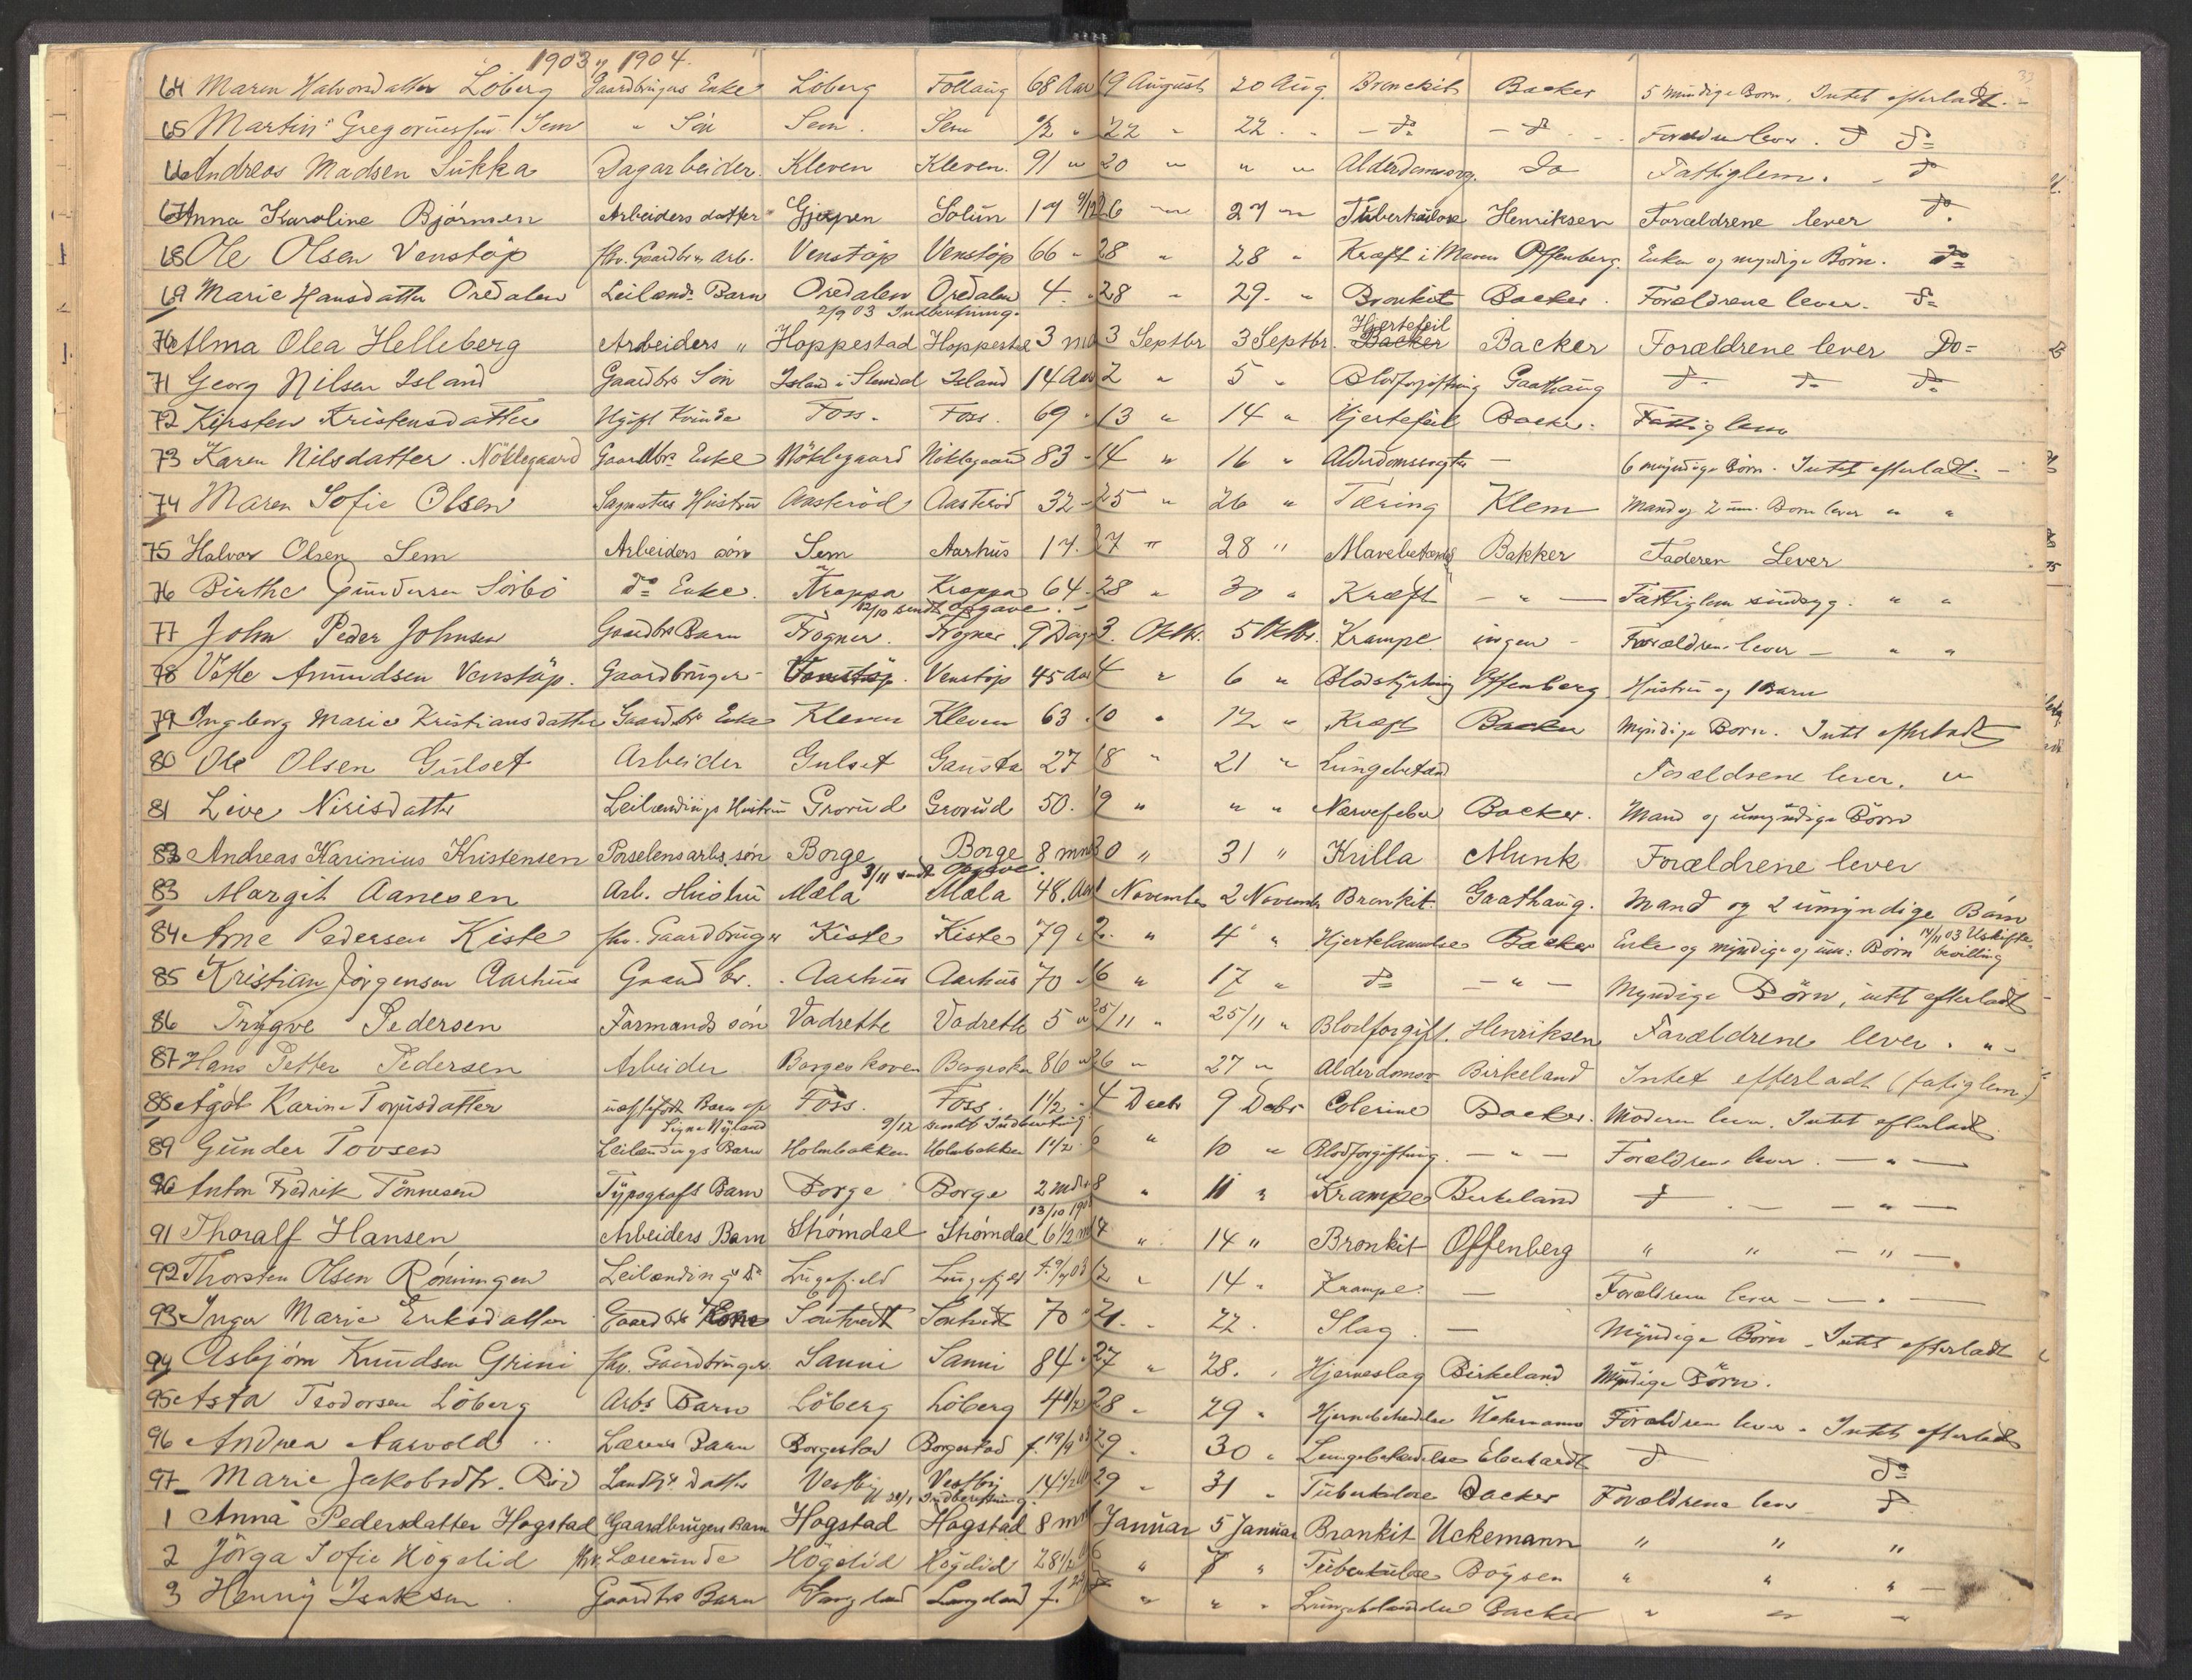 1903 og 1904.
64 Maren Halvorsdatter Löberg Gaardbrugers Enke Löberg Follaug 68 Aar 19 August 20 Aug. Bronckit Backer 5 mündige Born. Intet efterladt. -
65 Martin Gregoriussen Sem " Sön Sem. Sem 9/12 " 22 " 22. " - do - do - Foreldrene lever. do do
66 Andreas Madsen Sukka Dagarbeider. Kleven Kleven. 91 " 20 " " " Alderdomssvag. Do Fattiglem. - do
67 Anna Karoline Björnsen Arbeiders datter Gjerpen Solum 17 9/12 26 " 27 " Tüberkulose Henriksen Forældrene lever do.
68 Ole Olsen Venstöp fhv. Gaardbr. og Arb. Venstöp Venstöp 66 " 28 " 28 " Kræft i Maven Offenberg. Enke og myndige Börn. do
69 Marie Hansdatter Oredalen Leilænd. Barn Oredalen Oredalen 4. " 28 " 29. " Bronkit Backer. Forældrene lever. do
2/9 03 Indberetning.
70 Alma Olea Helleberg Arbeiders " Hoppestad Hoppestad 3 md 3 Septbr 3 Septbr. Hjertefeil Backer Backer Forældrene lever Do=
71 Georg Nilsen Island Gaardbrs Sön Island i Slemdal Island 14 Aar 2 " 5 " Blodforgiftning Gaathaug do do do
72 Kirsten Kristensdatter Ugift Kvinde Foss. Foss. 69 " 13 " 14 " Hjertefeil Backer. Fattiglem
73 Karen Nilsdatter. Nöklegaard Gaardbrs Enke Nöklegaard Nöklegaard 83 " 14 " 16 " Alderdomssvaghe - 6 myndige Börn. Intet efterladt. -
74 Maren Sofie Olsen Sagmesters Hüstrü Aasteröd Aasteröd 32 - 25 " 26 " Tæring Klem Mand og 2 um. Born lever " "
75 Halvor Olsen Sem Arbeiders sön Sem Aarhus 17. 27 " 28 " Mavebetænd Bakker Faderen Lever
76 Birthe Gundersen Sörbö do Enke. Kroppa Kroppa 64. 28 " 30 " Kræft - " - Fattiglem sindsyg. " "
12/10 sendt Opgave. -
77 John Peder Johnsen Gaardbrs Barn Frogner. Frogner. 9 Dage 3. Oktbr. 5 Oktbr. Krampe. ingen - Forældrene lever - " "
78 Vetle Amundsen Venstöp. Gaardbrüger - Venstöp. Venstöp 45 Aar 4 " 6 " Blodstyrtning Offenberg Hustru og 1 Barn
79 Ingborg Marie Kristiansdatter Gaardbrs Enke Kleven Kleven 63. 10 " 12 " Kræft Backer Myndige Born. Intet efterladt
80 Ole Olsen Gulset Arbeider Gulset Gausta 27 18 " 21 " Lungebetænd Forældrene lever. "
81 Live Nirisdatter Leilændings Hustru Grorud Grorud 50. 19 " " " Nervefeber Backer. Mand og umyndige Börn
82 Andreas Karinius Kristensen Porselensarbs. sön Borge Borge 8 mnd 30 " 31 " Krilla Munk Forældrene lever
3/11 sendt Opgave.
83 Margit Aanesen Arb. Hustru Mæla Mæla 48. Aar 1 November 2 November Bronkit. Gaathaug. Mand og 2 umyndige Börn
84 Arne Pedersen Kiste fhv. Gaardbruger Kiste Kiste 79 " 2. " 4 " Hjertelammelse Backer Enke og myndige og um: Börn 14/11 03 Uskifte-bevilling
85 Kristian Jörgensen Aarhus Gaardbr. Aarhus Aarhus 70 " 16 " 17 " do - " - Myndige Börn, intet efterladt
86 Trygve Pedersen Formands sön Vadrette Vadrette 5 " 25/11 " 25/11 " Blodforgift. Henriksen Forældrene lever. " -
87 Hans Petter Pedersen Arbeider Borgeskoven Borgeskov 86 " 26 " 27 " Alderdomsv Birkeland Intet efterladt (fatiglem)
88 Agot Karine Torjusdatter uægtefödt Barn af Signe Nyland Foss. Foss. 1 1/2 - 4 Decbr 9 Decbr Colerine Backer. Moderen lever. Intet efterladt
9/12 sendt Indberetning
89 Gunder Tovsen Leilændings Barn Holmbakken Holmbakken 1 1/2 6 " 10 " Blodforgiftning. - " - Forældrene lever. - " -
90 Anton Fredrik Tönnesen Typografs Barn Borge Borge 2 mdr 8 " 11 " Krampe Birkeland do. - " -
91 Thoralf Hansen Arbeiders Barn Strömdal Strömdal 6 1/2 14 " 14 " Bronkit Offenberg " " - " -
92 Thorsten Olsen Rönningen Leilændings do Lugefjeld Lugefjeld 12 " 14 " Krampe. - Forældrene lever - - " -
93 Inger Marie Eriksdatter Gaardbrs Kone Sontvedt Sontvedt 70 " 21. " 22. Slag. - Myndige Börn - Intet efterladt
94 Asbjörn Knudsen Grini fhv. Gaardbruger. Sanni Sanni 84 " 27 " 28. " Hjerneslag Birkeland Myndige Börn.
95 Asta Teodorsen Löberg Arbs Barn Löberg Löberg 4 28 " 29 " Hjernebetændelse Uckermann Forældrene lever. Intet efterladt
96 Andrea Aarvold Lærers Barn Borgestad Borgestad f. 19/9 03 29. 30 " Lungebetændelse Eberhardt do do
97 Marie Jakobsdtr. Röd Landhs. datter Vestby Vestby 14 1/2 29 " 31 " Tüberkulose Backer Forældrene lever do
Indberetning.
1 Anna Pedersdatter Hogstad Gaardbrugers Barn Hogstad Hogstad 8 Januar 5 Januar Bronkit Uckemann " " "
2 Jörga Sofie Högelid fhv. Lærerinde Högelid Högelid 28 1/2 6 " 8 " Tüberkulose Böysen " " " -
3 Henry Isaksen. Gaardbrs Barn Langelad Langelad f. " " " Lungebetændelse Backer " " "